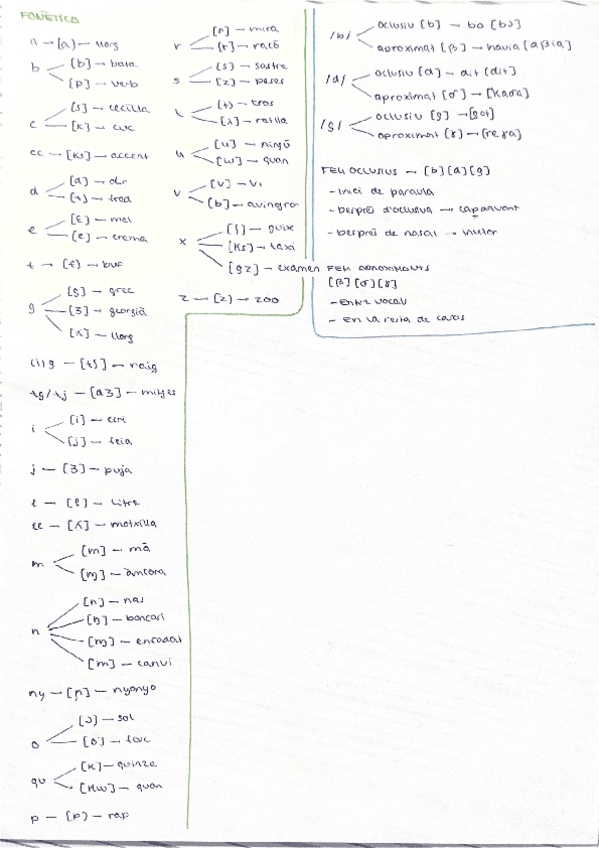 FONÈTICA
a → [a] — llarg
b — [b] — bala
[p] — verb
c — [s] — cecília
[k] — cuc
cc — [ks] — accent
d — [d] — dir
[t] — fred
e — [ɛ] — mel
[e] — crema
f — [f] — buf
g — [g] — grec
[ʒ] — geòrgia
[ʎ] — llarg
(i)g — [tʃ] — raig
tg/tj — [dʒ] — mitges
i — [i] — ciri
[j] — feia
j — [ʒ] — puja
l — [l] — litre
ll — [ʎ] — motxilla
m — [m] — mà
[ɱ] — àmfora
n — [n] — nas
[ŋ] — bancari
[ɱ] — enfadat
[m] — canvi
ny — [ɲ] — nyonyo
o — [ɔ] — sol
[o] — foc
qu — [k] — quinze
[kw] — quan
p — [p] — rap
r — [ɾ] — mira
[r] — rató
s — [s] — sastre
[z] — peses
t — [t] — tros
[ʎ] — ratlla
u — [u] — ningú
[w] — quan
v — [v] — vi
[b] — avingron
x — [ʃ] — guix
[ks] — taxi
[gz] — examen
z — [z] — zoo
/b/ oclusiu [b] — bo [bɔ]
aproximat [β] — havia [aβia]
/d/ oclusiu [d] — dit [dit]
aproximat [ð] — [kaða]
/g/ oclusiu [g] — [gat]
aproximat [ɣ] — [reɣa]
FEM OCLUSIUS — [b] [d] [g]
- Inici de paraula
- Després d'oclusiva → capdavant
- Després de nasal →
FEM APROXIMANTS
[β] [ð] [ɣ]
- Entre vocals
- En la resta de casos